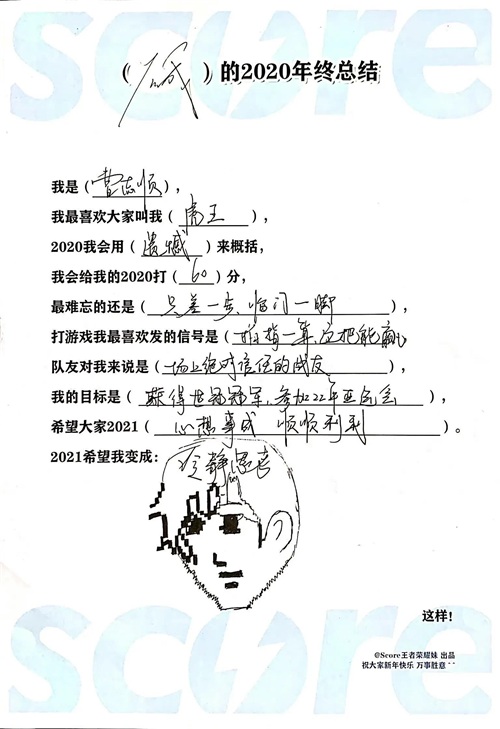 score
( 久诚 ) 的2020年终总结
我是 ( 曹志顺 ) ,
我最喜欢大家叫我 ( 帝王 ) ,
2020我会用 ( 遗憾 ) 来概括,
我会给我的2020打 ( 60 ) 分,
最难忘的还是 ( 只差一步, 临门一脚 ) ,
打游戏我最喜欢发的信号是 ( 掐指一算, 这把能赢 ) ,
队友对我来说是 ( 场上绝对信任的战友 ) ,
我的目标是 ( 获得世冠冠军, 参加22年亚运会 ) ,
希望大家2021 ( 心想事成 顺顺利利 ) 。
2021希望我变成:
冷静
这样!
@Score王者荣耀妹 出品
祝大家新年快乐 万事胜意~~
score